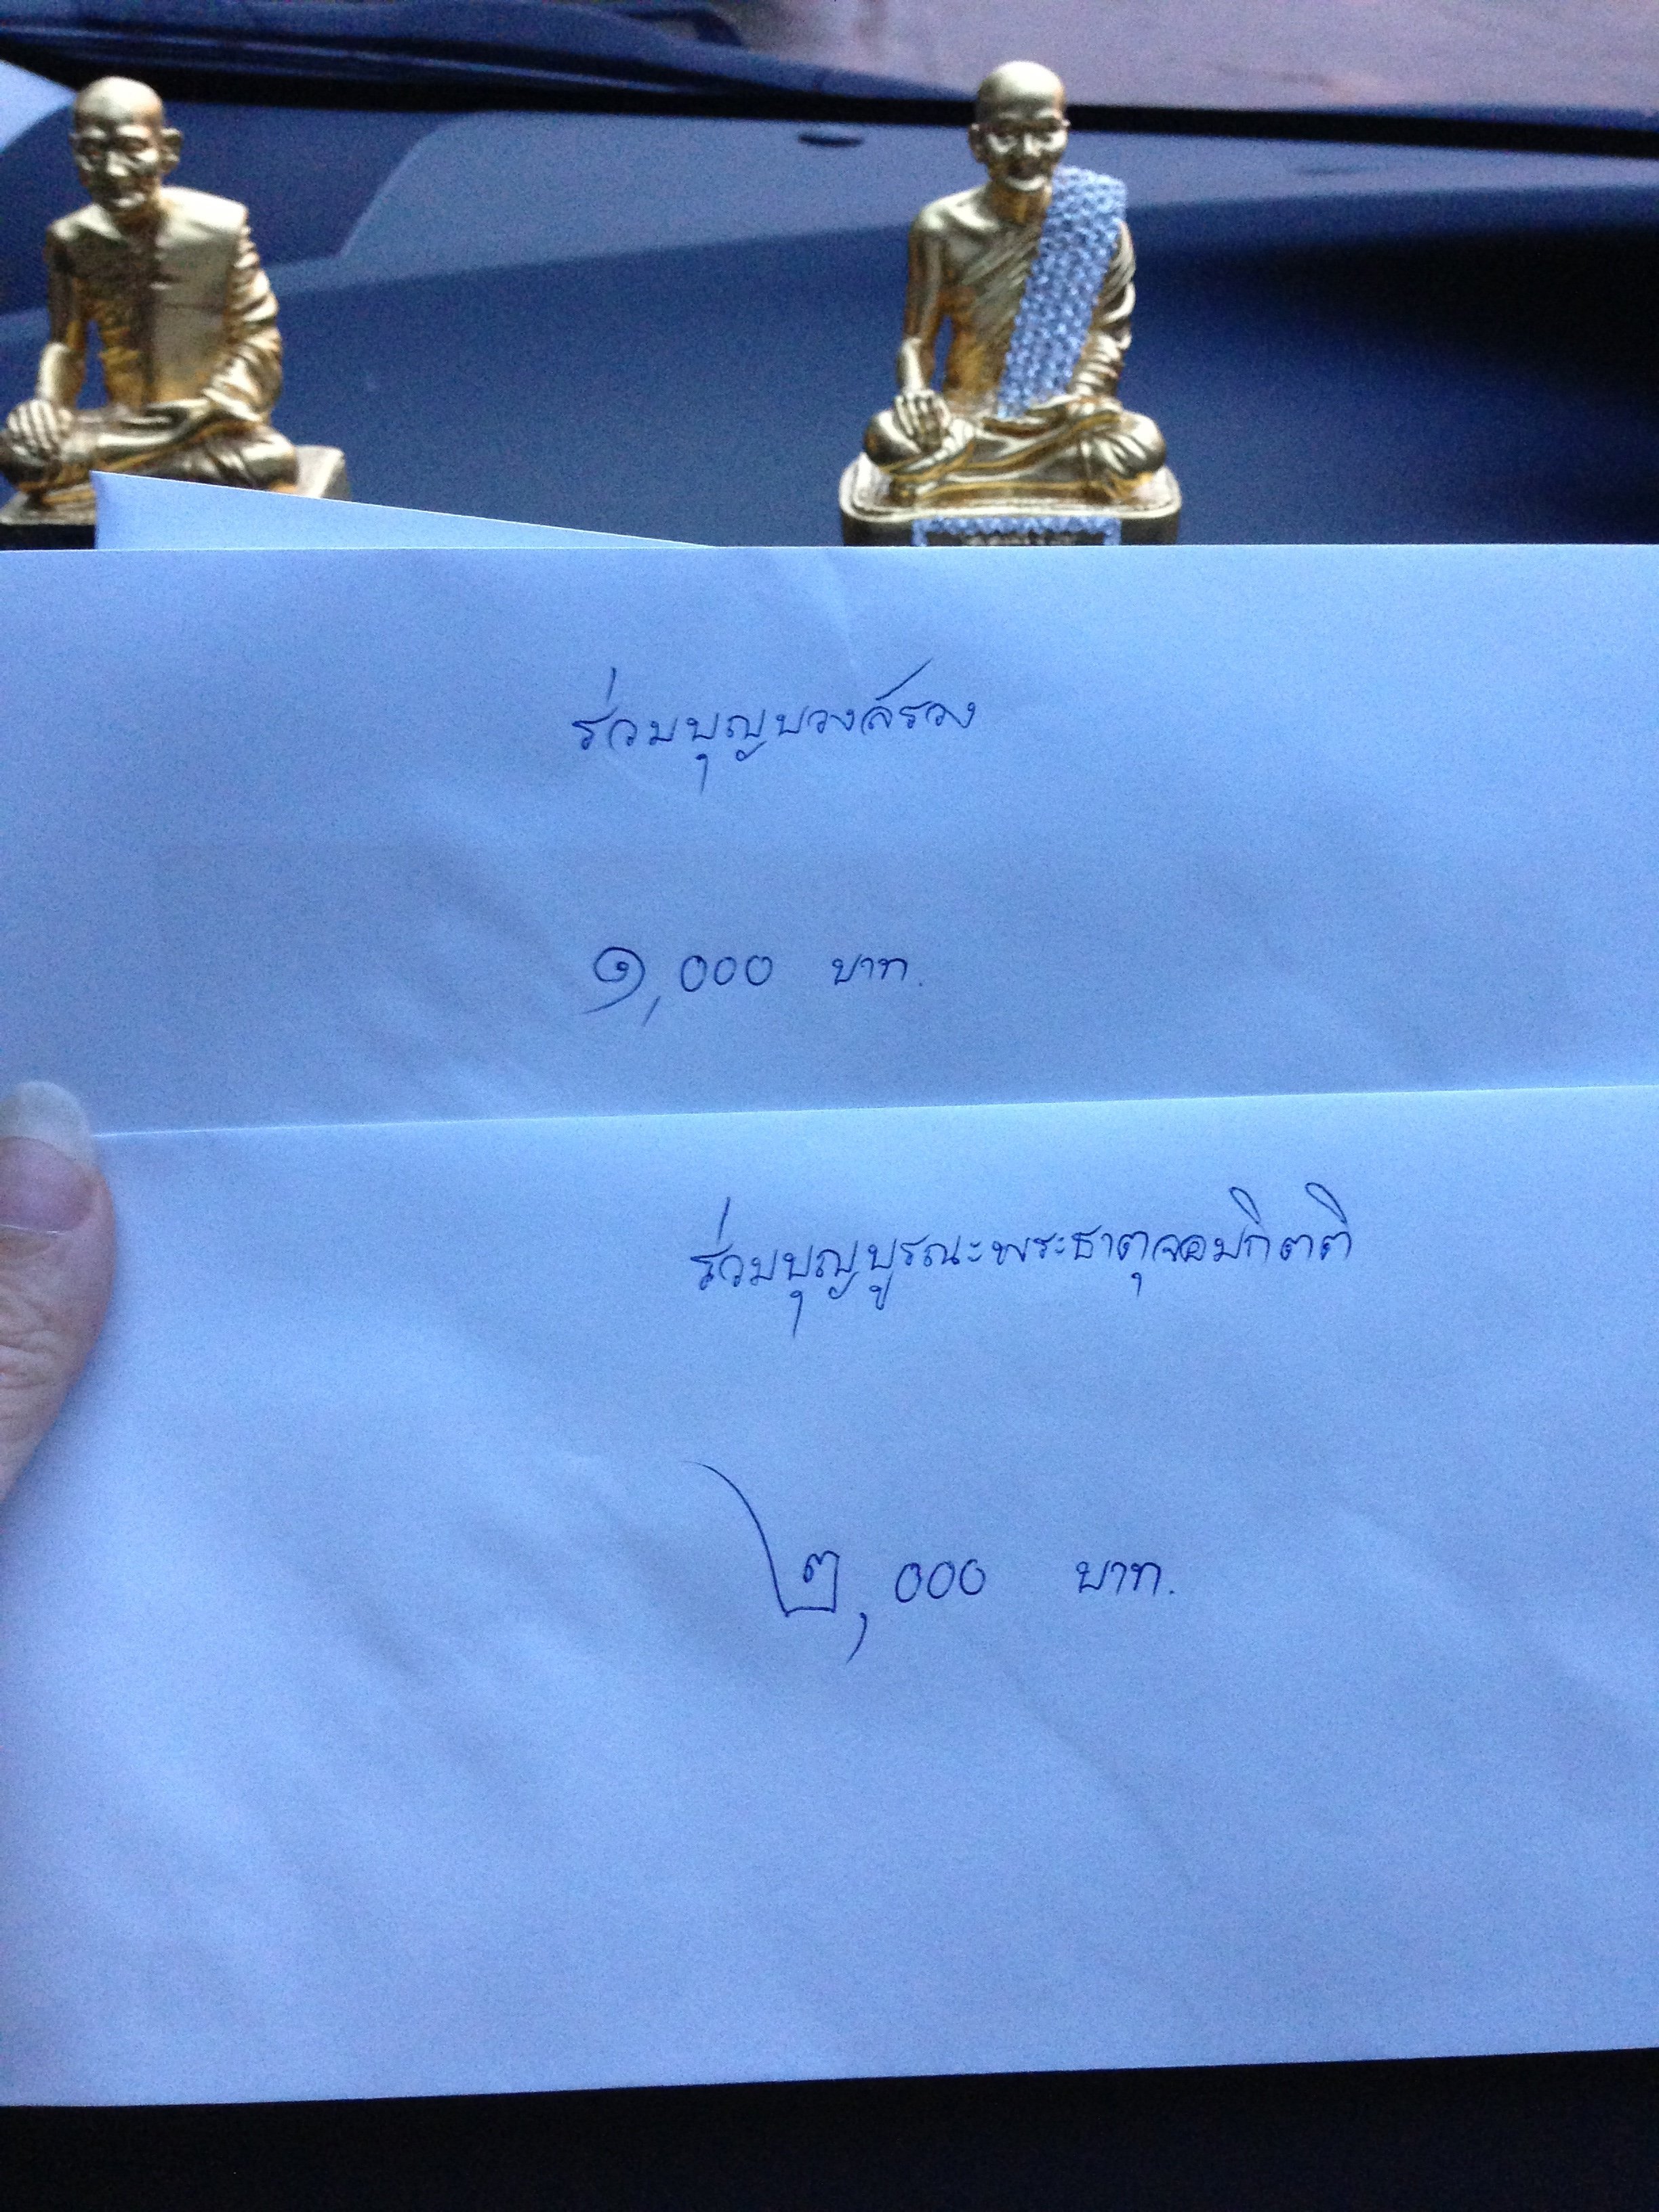 ร่วมบุญบวงสรวง
๑,๐๐๐ บาท.
ร่วมบุญบูรณะพระธาตุจอมกิตติ
๒,๐๐๐ บาท.